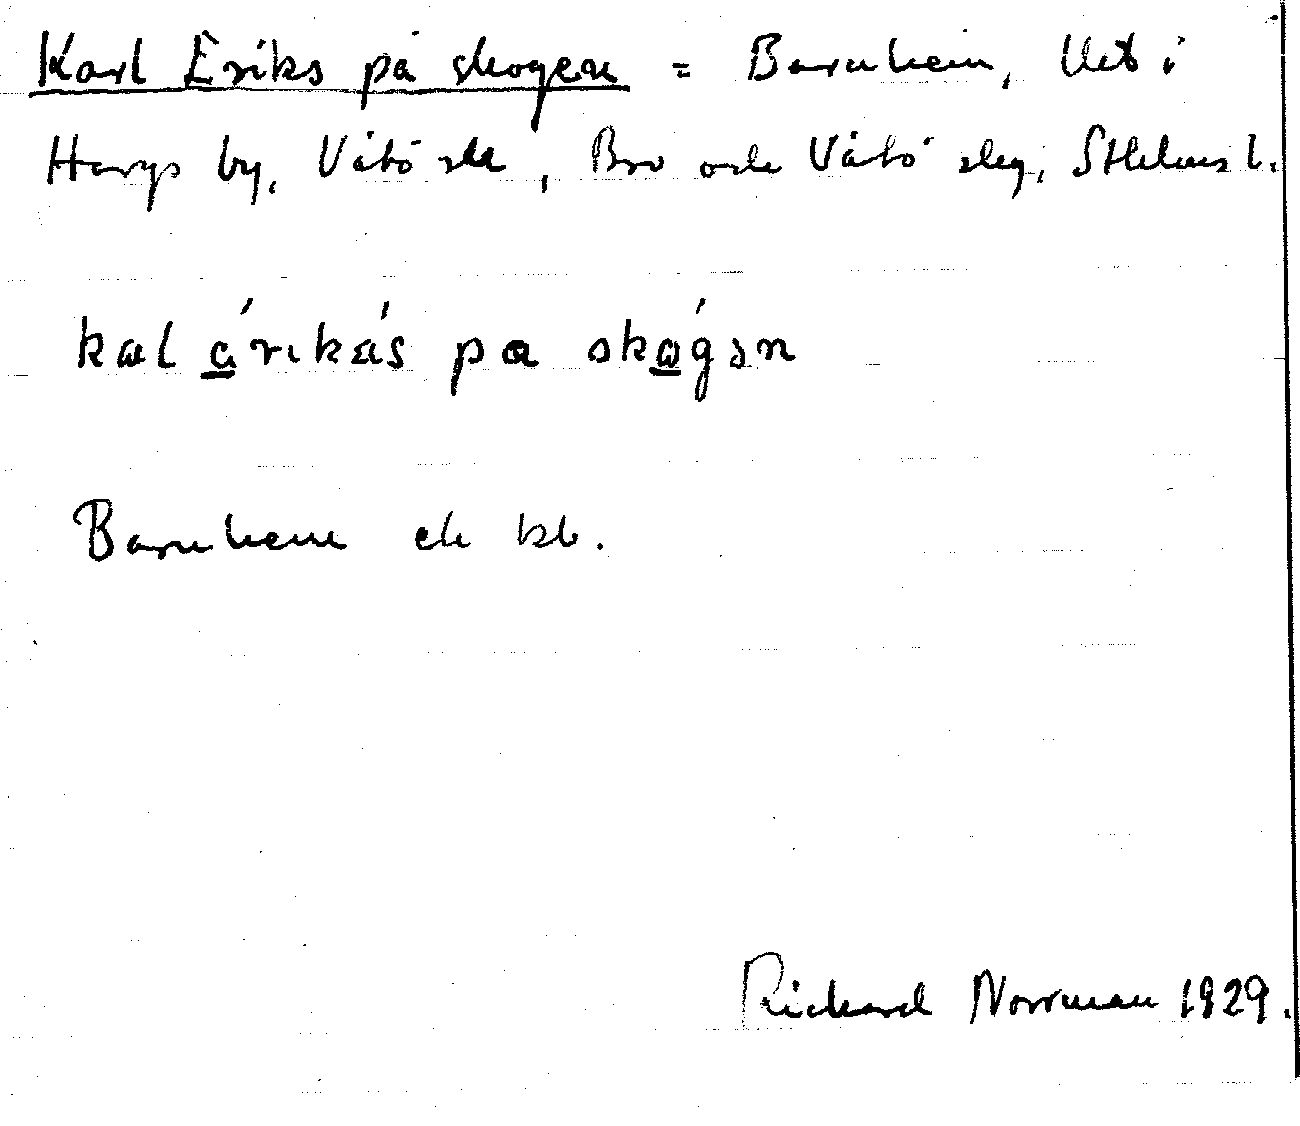 Karl Eriks på skogen = Barnhem, lht i
Harys by, Vätö sk, Bro och Vätö slg, Sthlms l.
kal árikás pa skágən
Barnhem ek bl.
Rickard Norrman 1929.